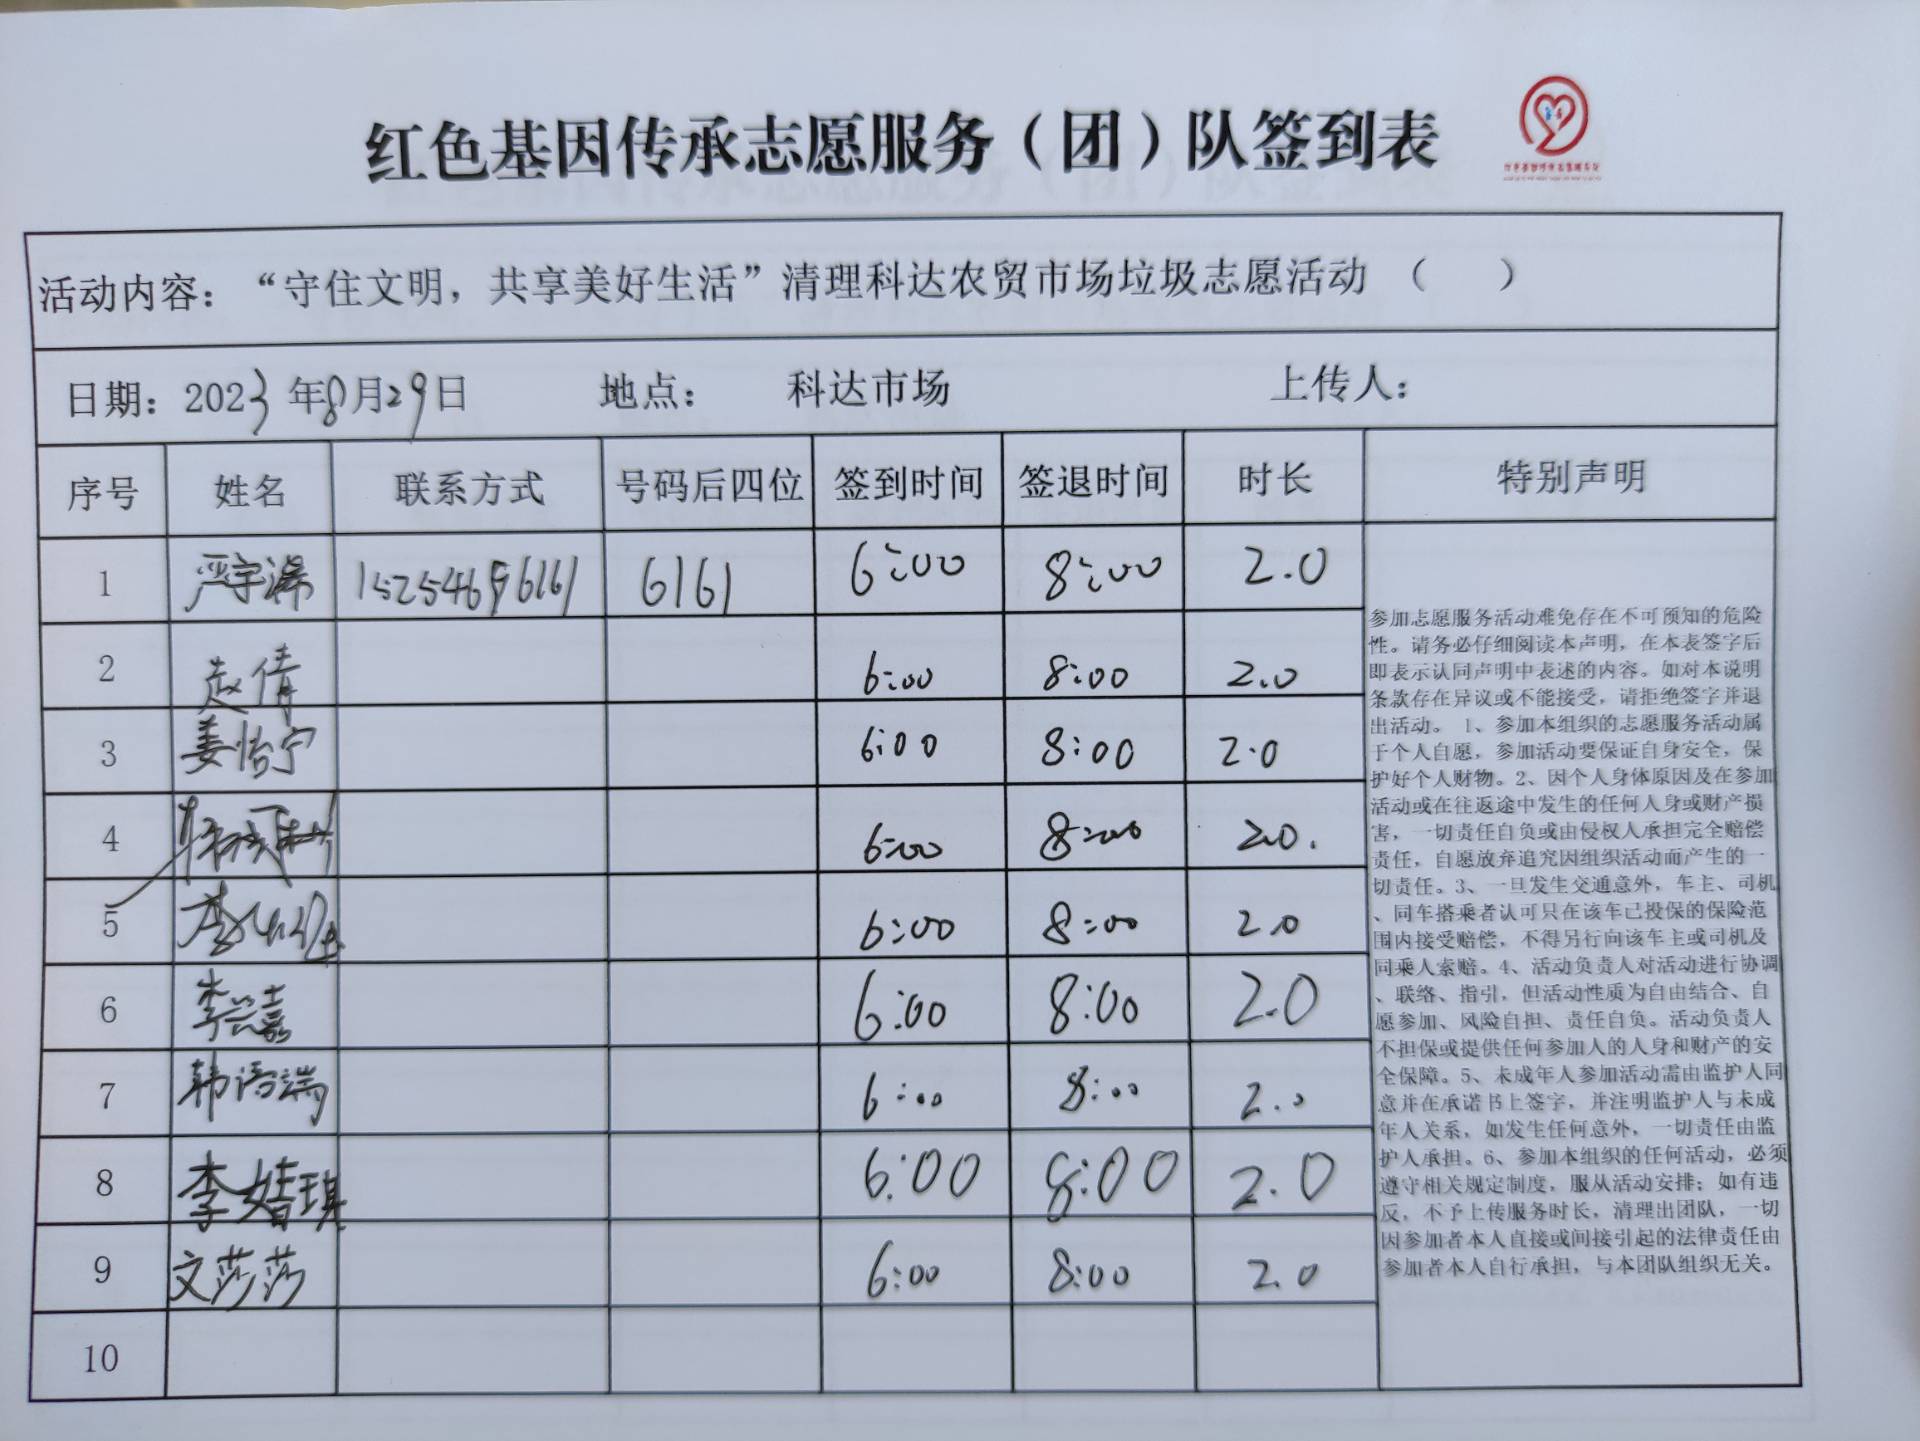 红色基因传承志愿服务（团）队签到表
活动内容：“守住文明，共享美好生活”清理科达农贸市场垃圾志愿活动 （ ）
日期：2023年8月29日 地点： 科达市场 上传人：
序号 姓名 联系方式 号码后四位 签到时间 签退时间 时长 特别声明
1 严宇 15254696161 6161 6:00 8:00 2.0
2 赵倩 6:00 8:00 2.0
3 姜怡宁 6:00 8:00 2.0
4 6:00 8:00 2.0.
5 李 6:00 8:00 2.0
6 李兴嘉 6:00 8:00 2.0
7 韩语端 6:00 8:00 2.0
8 李婧琪 6:00 8:00 2.0
9 文莎莎 6:00 8:00 2.0
10
参加志愿服务活动难免存在不可预知的危险
性。请务必仔细阅读本声明，在本表签字后
即表示认同声明中表述的内容。如对本说明
条款存在异议或不能接受，请拒绝签字并退
出活动。 1、参加本组织的志愿服务活动属
于个人自愿，参加活动要保证自身安全，保
护好个人财物。2、因个人身体原因及在参加
活动或在往返途中发生的任何人身或财产损
害，一切责任自负或由侵权人承担完全赔偿
责任，自愿放弃追究因组织活动而产生的一
切责任。3、一旦发生交通意外，车主、司机
、同车搭乘者认可只在该车已投保的保险范
围内接受赔偿，不得另行向该车主或司机及
同乘人索赔。4、活动负责人对活动进行协调
、联络、指引，但活动性质为自由结合、自
愿参加、风险自担、责任自负。活动负责人
不担保或提供任何参加人的人身和财产的安
全保障。5、未成年人参加活动需由监护人同
意并在承诺书上签字，并注明监护人与未成
年人关系，如发生任何意外，一切责任由监
护人承担。6、参加本组织的任何活动，必须
遵守相关规定制度，服从活动安排；如有违
反，不予上传服务时长，清理出团队，一切
因参加者本人直接或间接引起的法律责任由
参加者本人自行承担，与本团队组织无关。